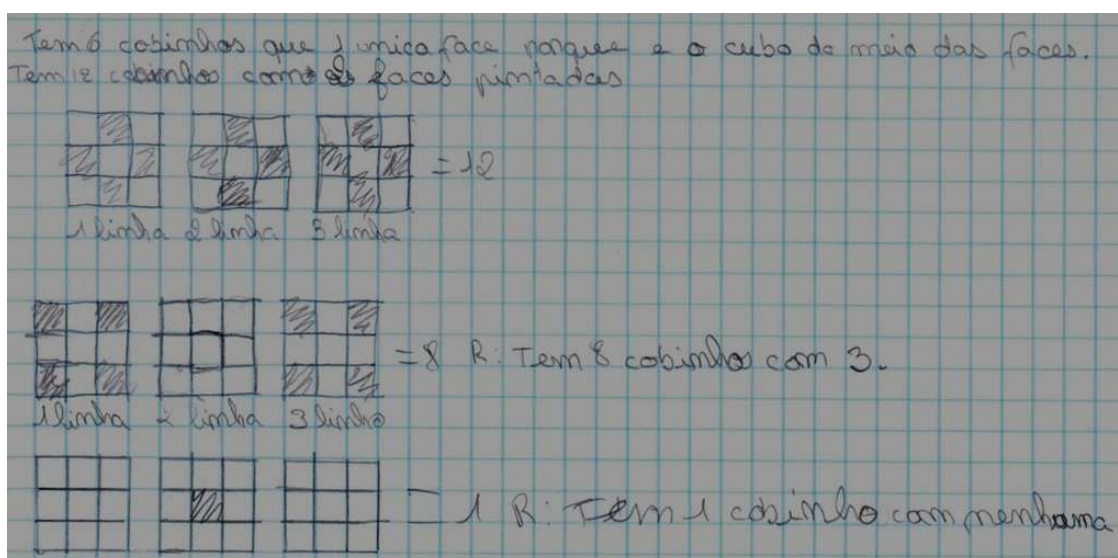 Tem 6 cobinhos que 1 unica face porque e o cubo do meio das faces.
Tem 12 cobinhos com faces pintadas
= 12
1 linha 2 linha 3 linha
= 8 R: Tem 8 cobinhos com 3.
1 linha 2 linha 3 linha
= 1 R: Tem 1 cobinho com nenhuma